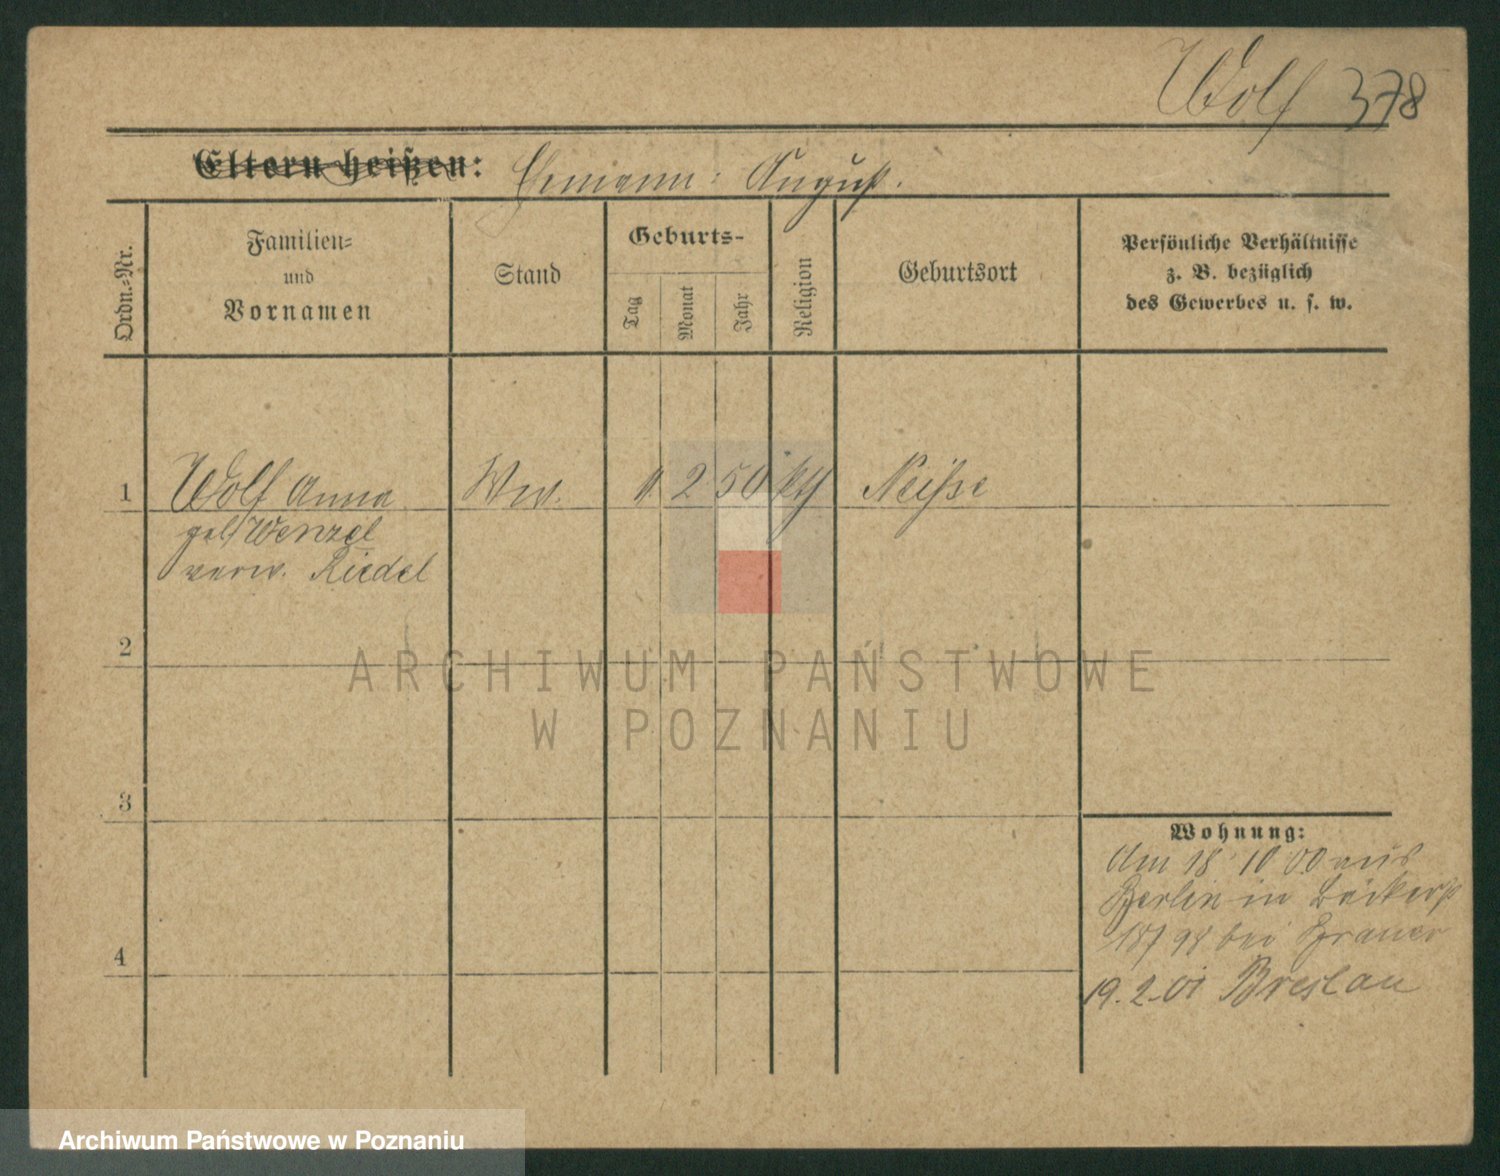 Wolf 378
Eltern heißen: Ehemann: August.
Ordn.-Nr.
Familien-
und
Vornamen
Stand
Geburts-
Tag
Monat
Jahr
Religion
Geburtsort
Persönliche Verhältnisse
z. B. bezüglich
des Gewerbes u. s. w.
1 Wolf Anna Ww. 2 50 kth Neisse
geb Wenzel
verw. Riedel
2
3
4
Wohnung:
Am 18 10 00 aus
Berlin in Bäckerst
bei
19.2.01 Breslau
ARCHIWUM PAŃSTWOWE
W POZNANIU
Archiwum Państwowe w Poznaniu